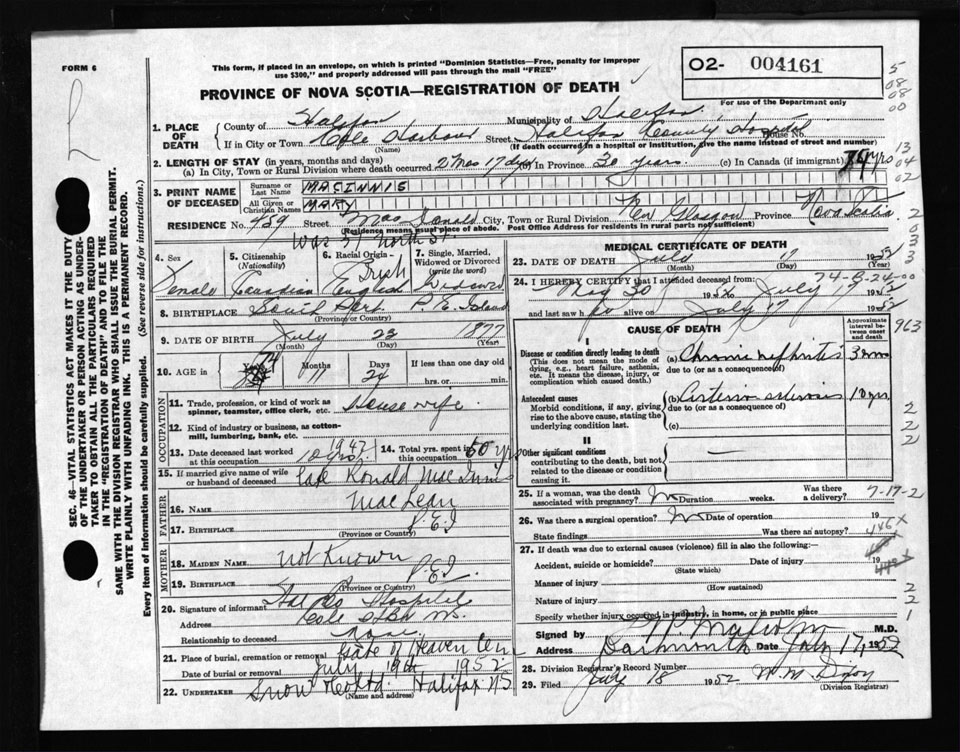 FORM 6
This form, if placed in an envelope, on which is printed "Dominion Statistics—Free, penalty for improper
use $300," and properly addressed will pass through the mail "FREE"
O2- 004161
For use of the Department only
PROVINCE OF NOVA SCOTIA—REGISTRATION OF DEATH
1. PLACE OF DEATH
County of Halifax Municipality of Halifax
If in City or Town Cole Harbour Street Halifax County Hospital House No.
(Name) (If death occurred in a hospital or institution, give the name instead of street and number)
2. LENGTH OF STAY (in years, months and days)
(a) In City, Town or Rural Division where death occurred 2 mos 17 dys (b) In Province 30 years. (c) In Canada (if immigrant) 74 yrs
3. PRINT NAME OF DECEASED
Surname or Last Name MACINNIS
All Given or Christian Names MARY
RESIDENCE No. 459 Street MacDonald City, Town or Rural Division New Glasgow Province Nova Scotia
(Residence means usual place of abode. Post Office Address for residents in rural parts not sufficient)
4. Sex Female
5. Citizenship (Nationality) Canadian
6. Racial Origin-
7. Single, Married, Widowed or Divorced (write the word) Widowed
8. BIRTHPLACE P. E. Island
(Province or Country)
9. DATE OF BIRTH July 23 1877
(Month) (Day) (Year)
10. AGE in 74 Months 11 Days 24 If less than one day old
hrs. or min.
OCCUPATION
11. Trade, profession, or kind of work as
spinner, teamster, office clerk, etc. House wife.
12. Kind of industry or business, as cotton-
mill, lumbering, bank, etc.
13. Date deceased last worked at this occupation 1947
14. Total yrs. spent in this occupation 50 yrs
15. If married give name of wife
or husband of deceased Late Ronald MacInnis
FATHER
16. Name MacLean
17. Birthplace P.E.I
(Province or Country)
MOTHER
18. MAIDEN NAME not Known
19. BIRTHPLACE P.E.I.
(Province or Country)
20. Signature of informant Hal Co Hospital
Address Cole Hbr NS.
Relationship to deceased none
21. Place of burial, cremation or removal Gate of Heaven Cem
Date of burial or removal July 19th 1952
22. UNDERTAKER Snow & Co Ltd. Halifax NS
(Name and address)
MEDICAL CERTIFICATE OF DEATH
23. DATE OF DEATH July 17 1952
(Month) (Day) (Year)
24. I HEREBY CERTIFY that I attended deceased from:
May 30 1952 to July 17 1952
and last saw h alive on July 17 1952
CAUSE OF DEATH
Approximate interval between onset and death
I
Disease or condition directly leading to death
(This does not mean the mode of
dying, e.g., heart failure, asthenia,
etc. It means the disease, injury, or
complication which caused death.)
(a) Chronic nephritis
due to (or as a consequence of)
Antecedent causes
Morbid conditions, if any, giving
rise to the above cause, stating the
underlying condition last.
(b) Arteriosclerosis 10 yrs.
due to (or as a consequence of)
(c)
II
Other significant conditions
contributing to the death, but not
related to the disease or condition
causing it.
25. If a woman, was the death
associated with pregnancy? No Duration weeks. Was there a delivery? 7-17-2
26. Was there a surgical operation? No Date of operation 19
State findings Was there an autopsy?
27. If death was due to external causes (violence) fill in also the following:—
Accident, suicide or homicide? Date of injury 19
(State which)
Manner of injury
(How sustained)
Nature of injury
Specify whether injury occurred in industry, in home, or in public place
Signed by M.D.
Address Dartmouth Date July 17, 1952
28. Division Registrar's Record Number
29. Filed July 18 1952 W. M. Dixon
(Division Registrar)
SEC. 46—VITAL STATISTICS ACT MAKES IT THE DUTY
OF THE UNDERTAKER OR PERSON ACTING AS UNDER-
TAKER TO OBTAIN ALL THE PARTICULARS REQUIRED
IN THE "REGISTRATION OF DEATH" AND TO FILE THE
SAME WITH THE DIVISION REGISTRAR WHO SHALL ISSUE THE BURIAL PERMIT.
WRITE PLAINLY WITH UNFADING INK. THIS IS A PERMANENT RECORD.
Every item of information should be carefully supplied. (See reverse side for instructions.)